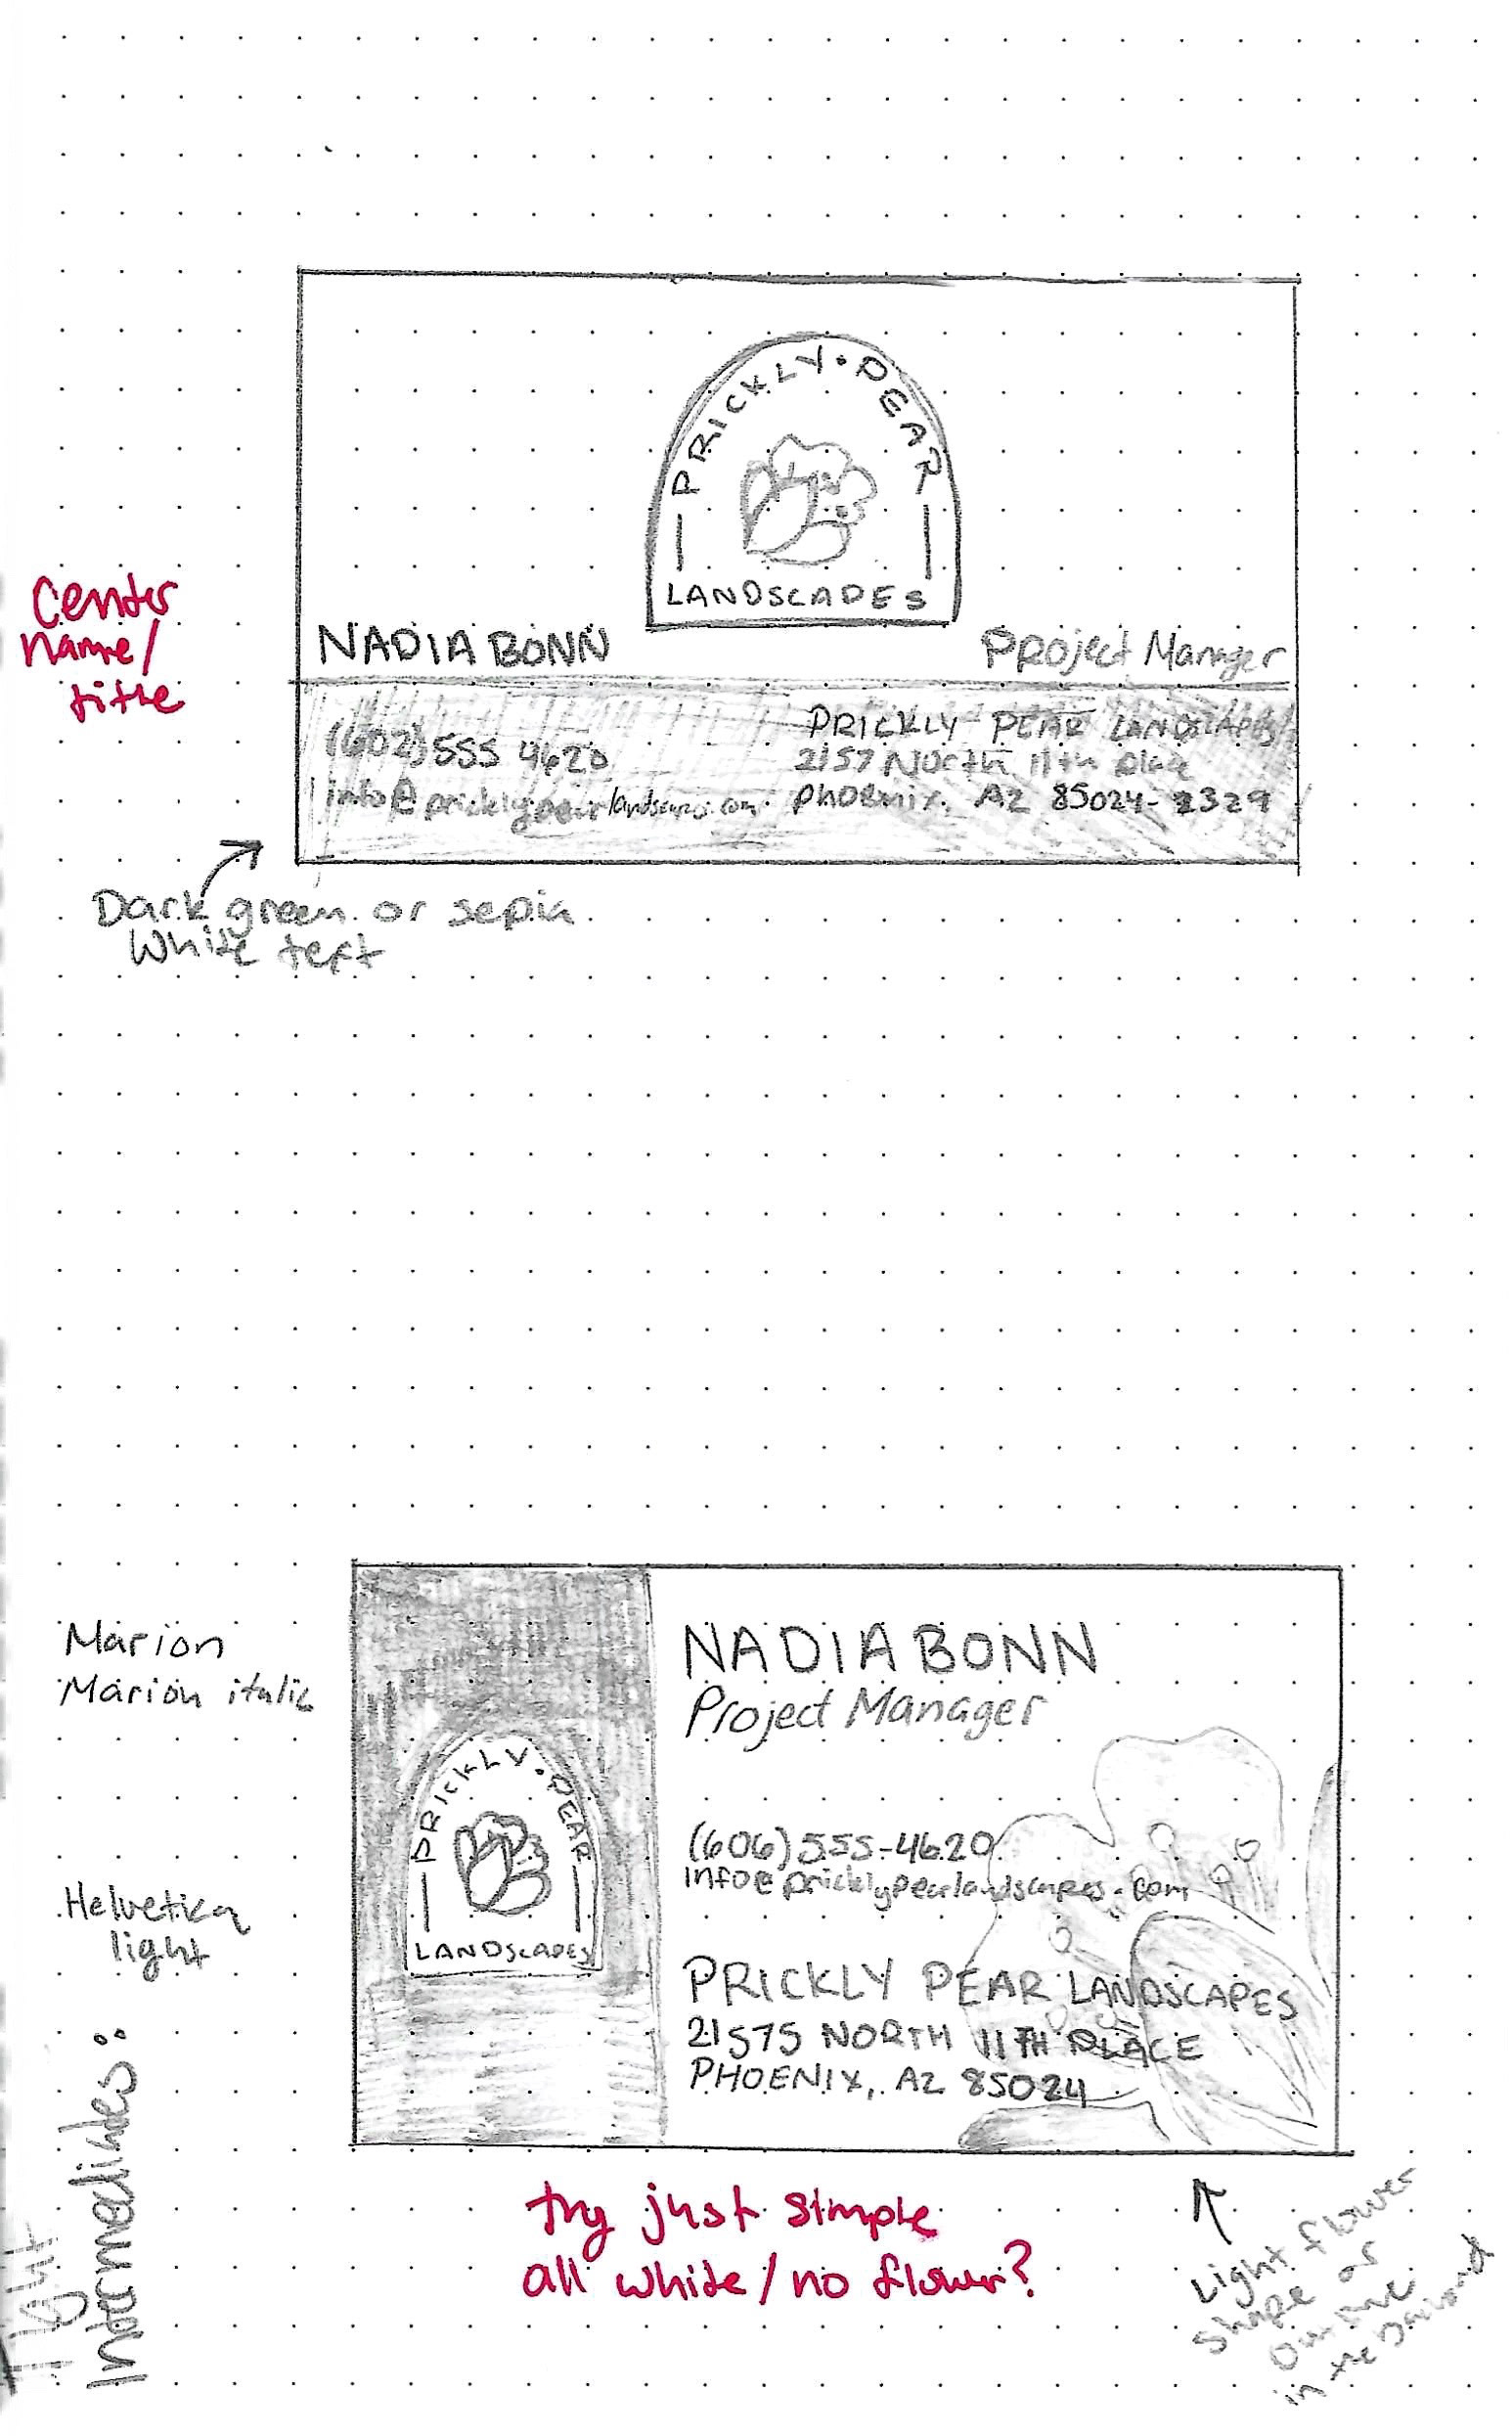 PRICKLY · PEAR
LANDSCAPES
Center
name/
title
NADIA BONN
Project Manager
(602) 555 4620
PRICKLY PEAR LANDSCAPES
2157 North 11th place
info@pricklypearlandscapes.com
Phoenix, AZ 85024-2329
Dark green or sepia
White text
Marion
Marion italic
Helvetica
light
PRICKLY · PEAR
LANDSCAPES
NADIA BONN
Project Manager
(606) 555-4620
info@pricklypearlandscapes.com
PRICKLY PEAR LANDSCAPES
21575 NORTH 11TH PLACE
PHOENIX, AZ 85024
Tight
Intermediates:
try just simple
all white/no flower?
Light flower
shape or
outline
in the